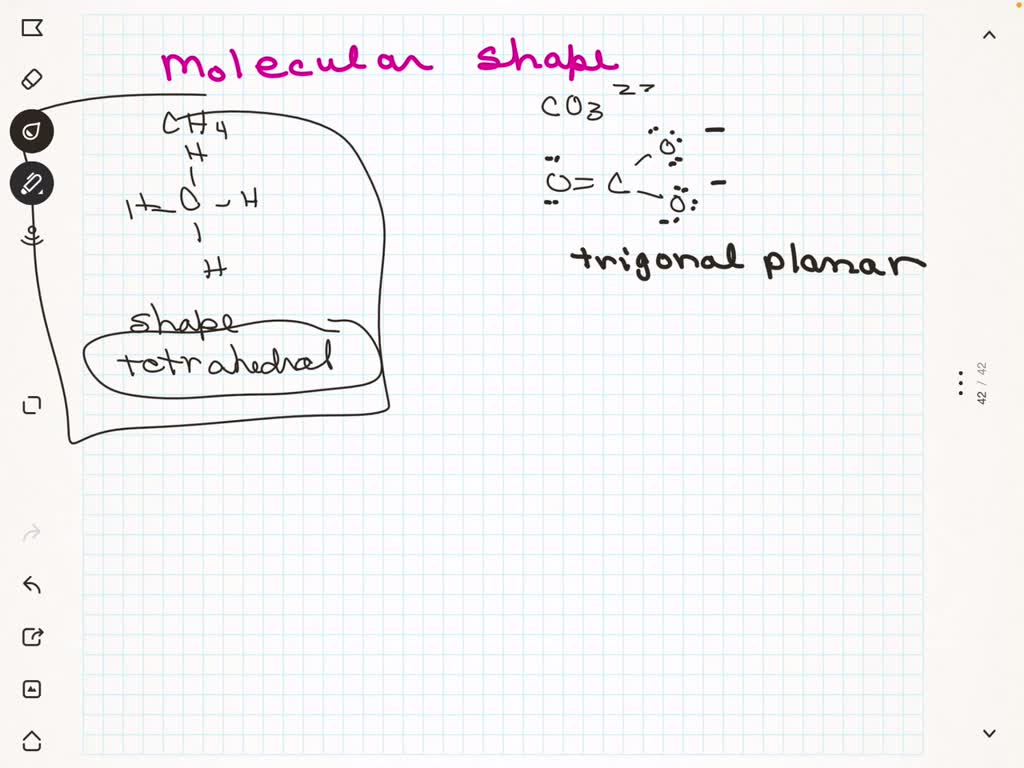 Molecular shape
CH4
H
H - O - H
H
shape
tetrahedral
CO3 2-
O = C - O -
O -
trigonal planar
42 / 42